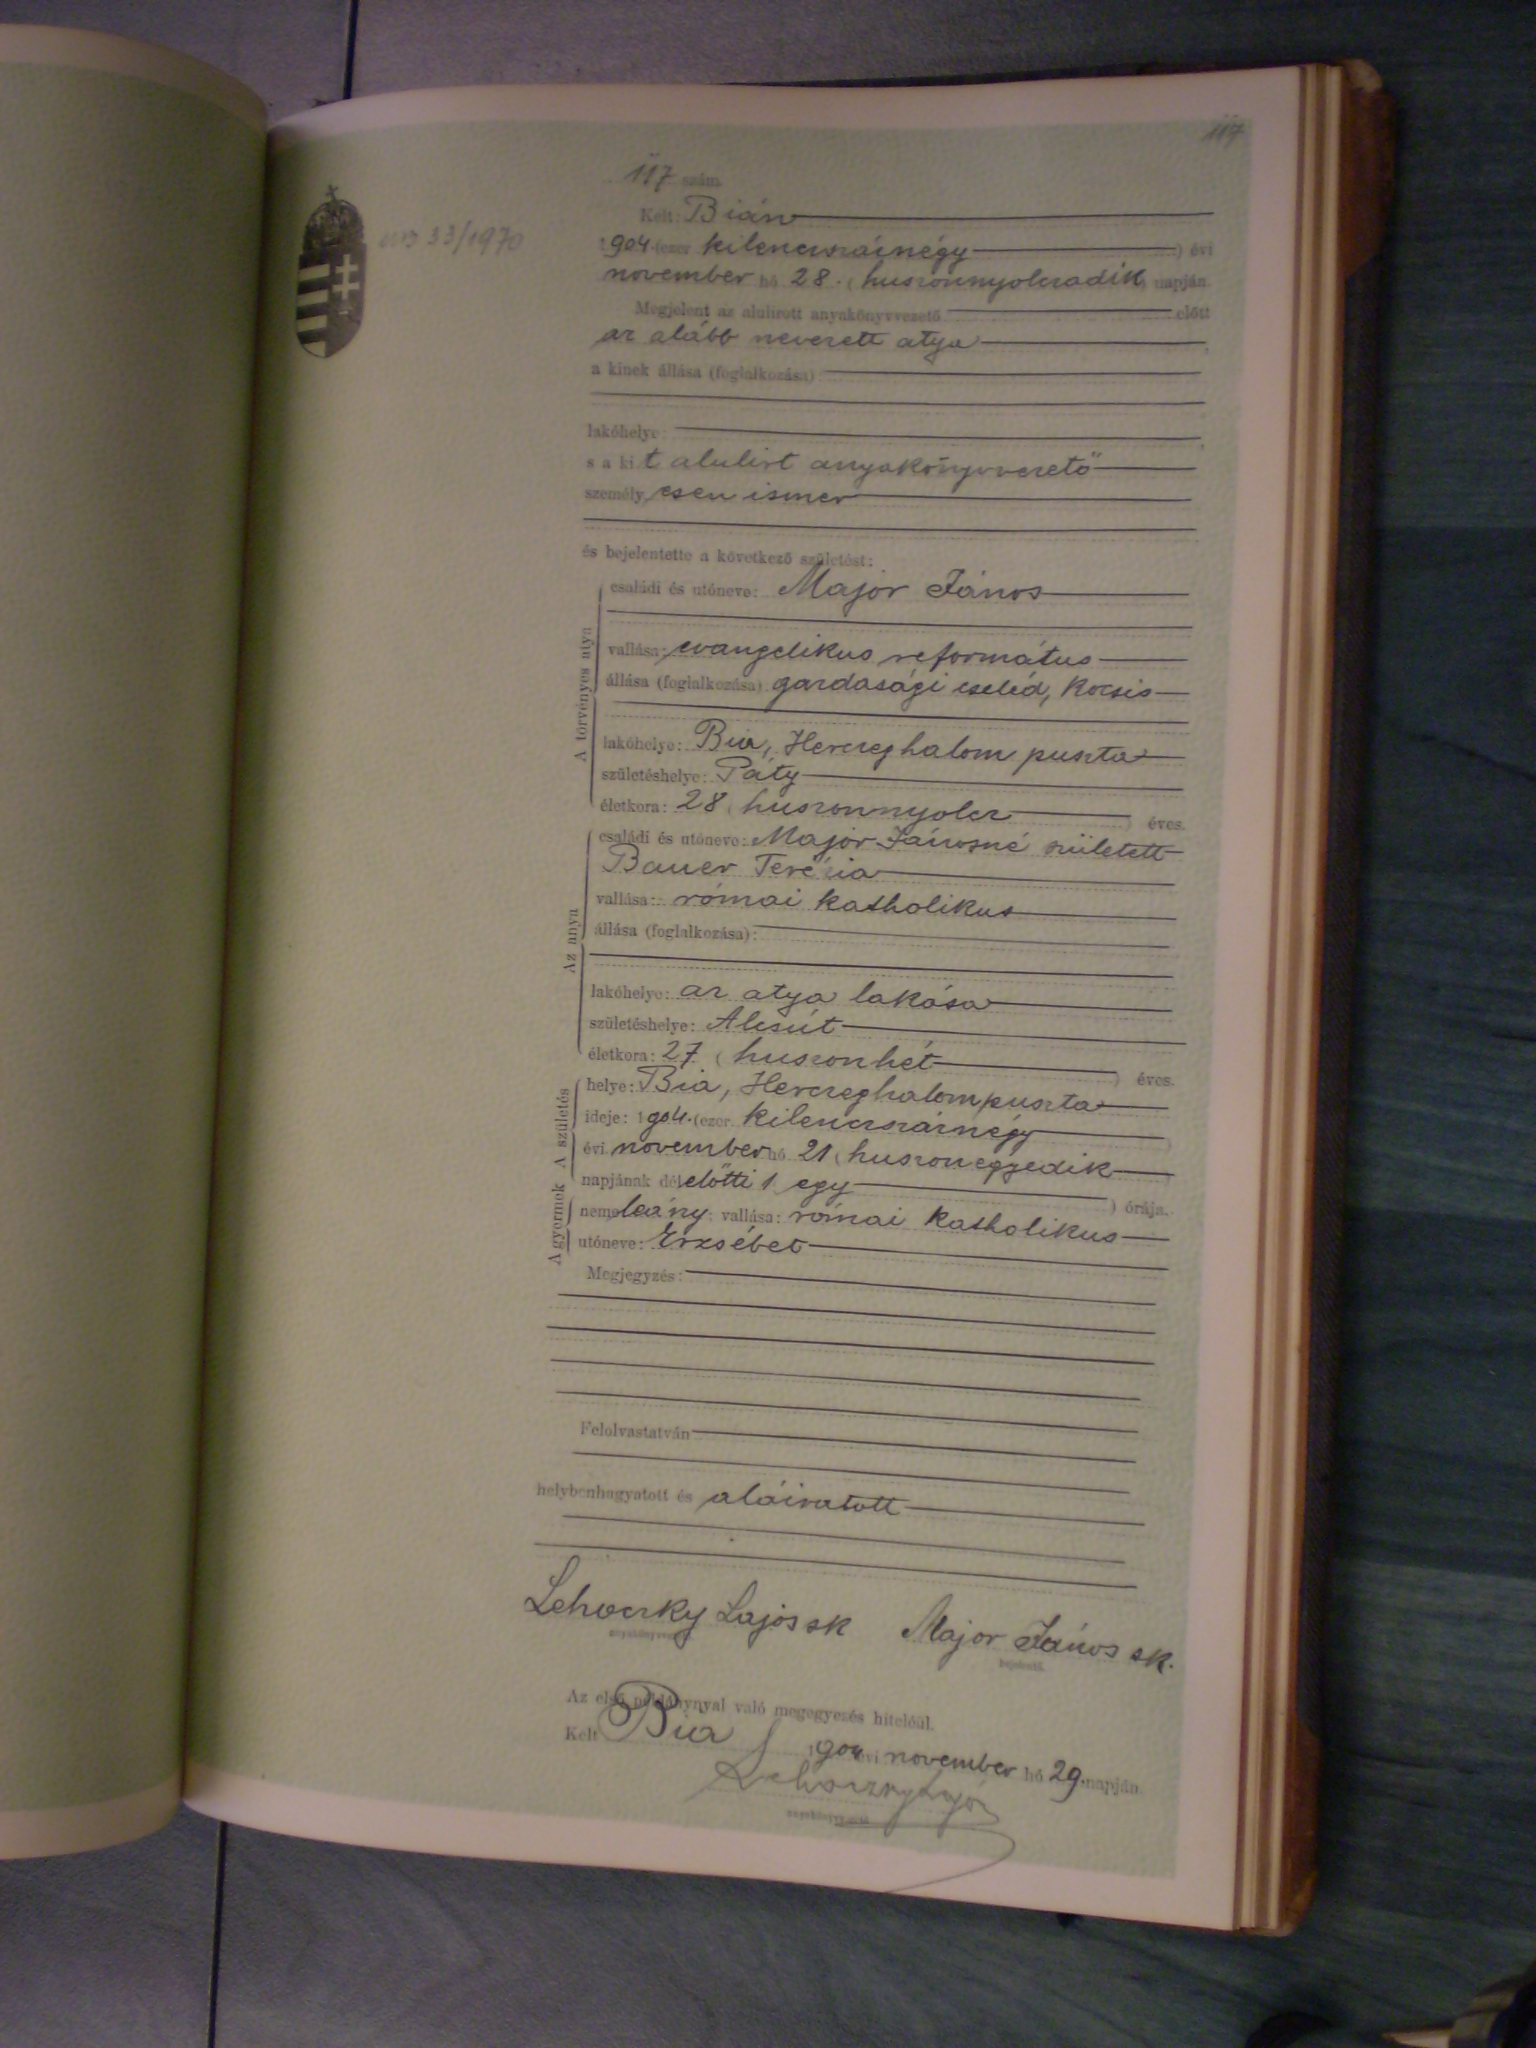 117
117 szám.
33/1970
Kelt: Bián
1904 (ezer kilencszáznégy) évi
november hó 28. (huszonnyolczadik) napján.
Megjelent az alulirott anyakönyvvezető előtt
az alább nevezett atya
a kinek állása (foglalkozása)
lakóhelye:
s a kit alulirt anyakönyvvezető
személyesen ismer
és bejelentette a következő születést:
A törvényes atya
családi és utóneve: Major János
vallása: evangelikus református
állása (foglalkozása): gazdasági cseléd, kocsis
lakóhelye: Bia, Herczeghalom puszta
születéshelye: Páty
életkora: 28 (huszonnyolcz) éves.
Az anya
családi és utóneve: Major Jánosné született
Bauer Terézia
vallása: római katholikus
állása (foglalkozása):
lakóhelye: az atya lakása
születéshelye: Alcsút
életkora: 27 (huszonhét) éves.
A születés
helye: Bia, Herczeghalompuszta
ideje: 1904. (ezer kilenczszáznégy)
évi november hó 21 (huszonegyedik
napjának délelőtti 1 egy) órája.
A gyermek
neme: leány; vallása: római katholikus
utóneve: Erzsébet
Megjegyzés:
Felolvastatván
helybenhagyatott és aláiratott
Lehoczky Lajos sk Major János sk.
anyakönyvvezető. bejelentő.
Az első példánynyal való megegyezés hiteléül.
Kelt Bia 1904 évi november hó 29. napján
Lehoczky Lajos
anyakönyvvezető.